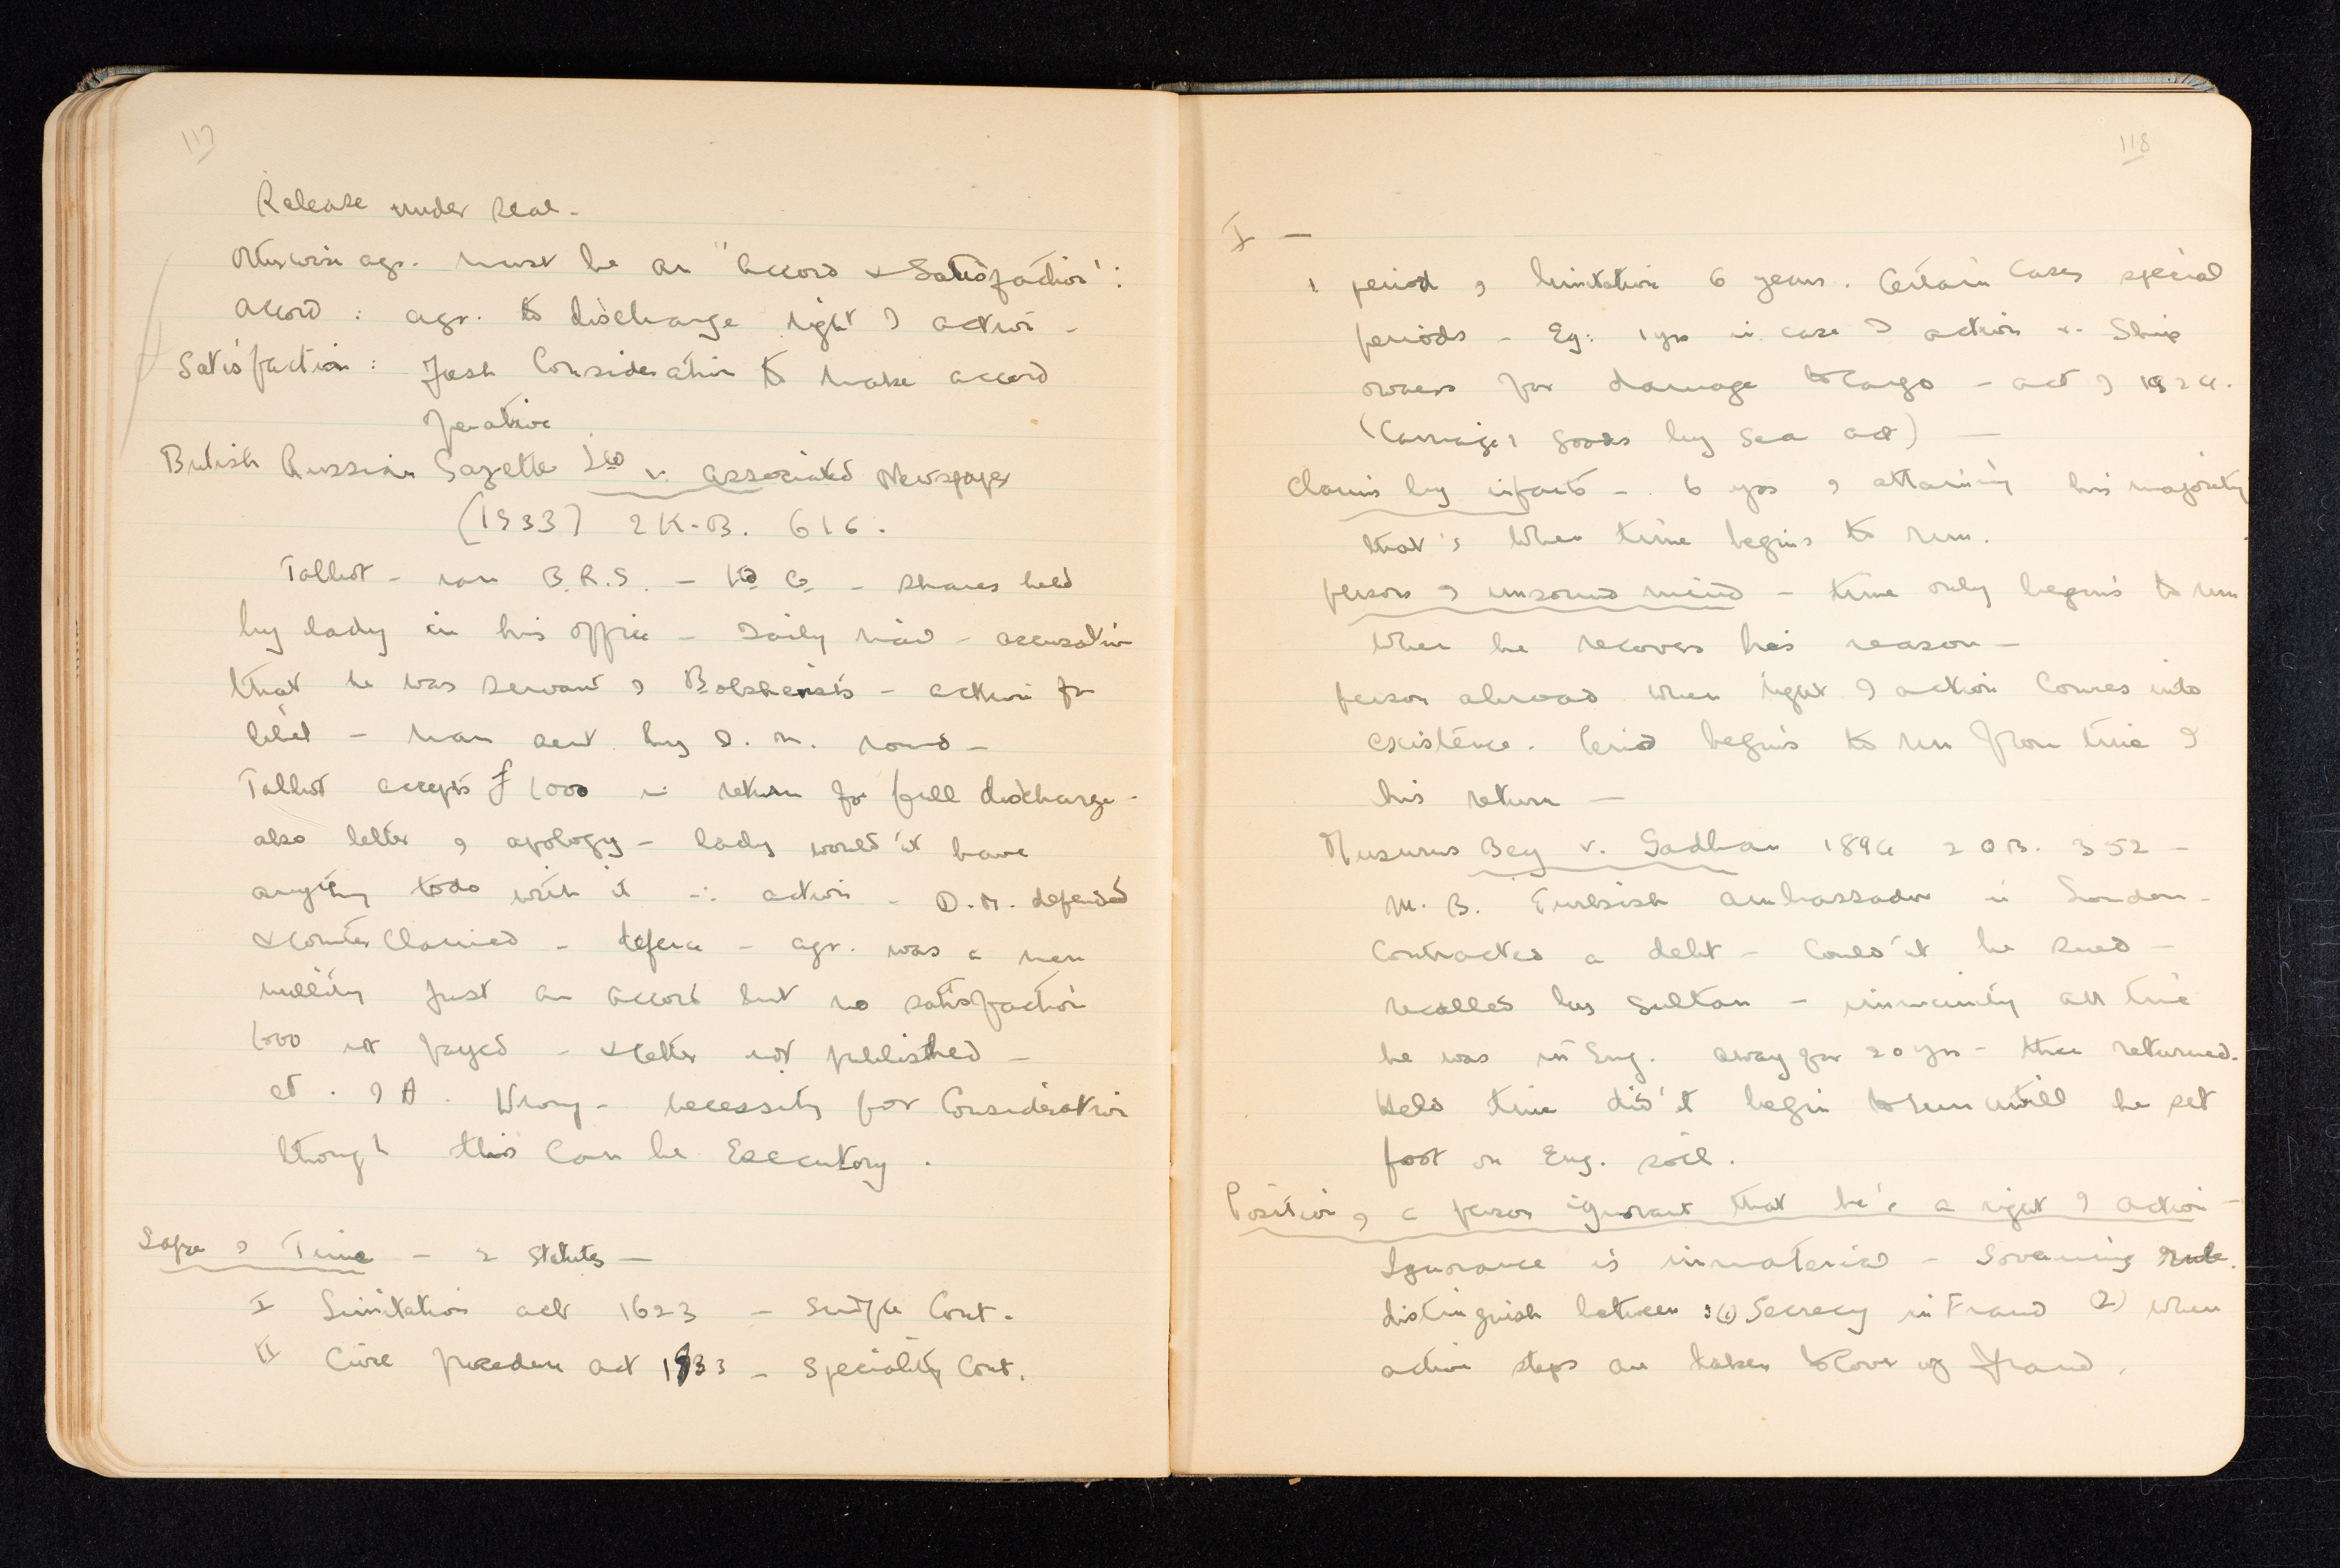 117
Release under seal -
Otherwise agr. must be an "accord & Satisfaction":
accord : agr. to discharge right of action -
Satisfaction : fresh Consideration to make accord
operative
British Russian Gazette Ltd v. associated Newspaper
(1933) 2 K.B. 616.
Talbot - ran B.R.G. - Ltd Co - shares held
by lady in his office - Daily Mail - accusation
that he was servant of Bolshevists - action for
libel - man sent by D. M. round -
Talbot accepts £1000 in return for full discharge -
also letter of apology - lady would'nt have
anything to do with it ∴ action - D.M. defended
& Counter Claimed - defence - agr. was a mere
nullity just an accord but no satisfaction
1000 not payed - & letter not published -
Ct. of A. Wrong - necessity for Consideration
though this Can be Executory.
Lapse of Time - 2 Statutes -
I Limitation act 1623 - Simple Cont.
II Civil procedure act 1933 - Speciality Cont.
118
I -
1 period of limitation 6 years. Certain Cases special
periods - Eg: 1 yr in case of action v. Ship
owners for damage to Cargo - act of 1924.
(Carriage of goods by Sea act) -
Claims by infants - 6 yrs of attaining his majority
that's when time begins to run.
person of unsound mind - time only begins to run
when he recovers his reason -
person abroad when right of action Comes into
existence. Period begins to run from time of
his return -
Musurus Bey v. Gadban 1894 2 QB. 352 -
M. B. Turkish ambassador in London -
Contracted a debt - Could'nt be sued -
recalled by Sultan - immunity all time
he was in Eng. away for 20 yrs - then returned.
Held time did'nt begin to run until he set
foot on Eng. soil.
Position of a person ignorant that he's a right of action -
Ignorance is immaterial - Governing rule.
distinguish between : (1) Secrecy in Fraud (2) when
active steps are taken to Cover up fraud.